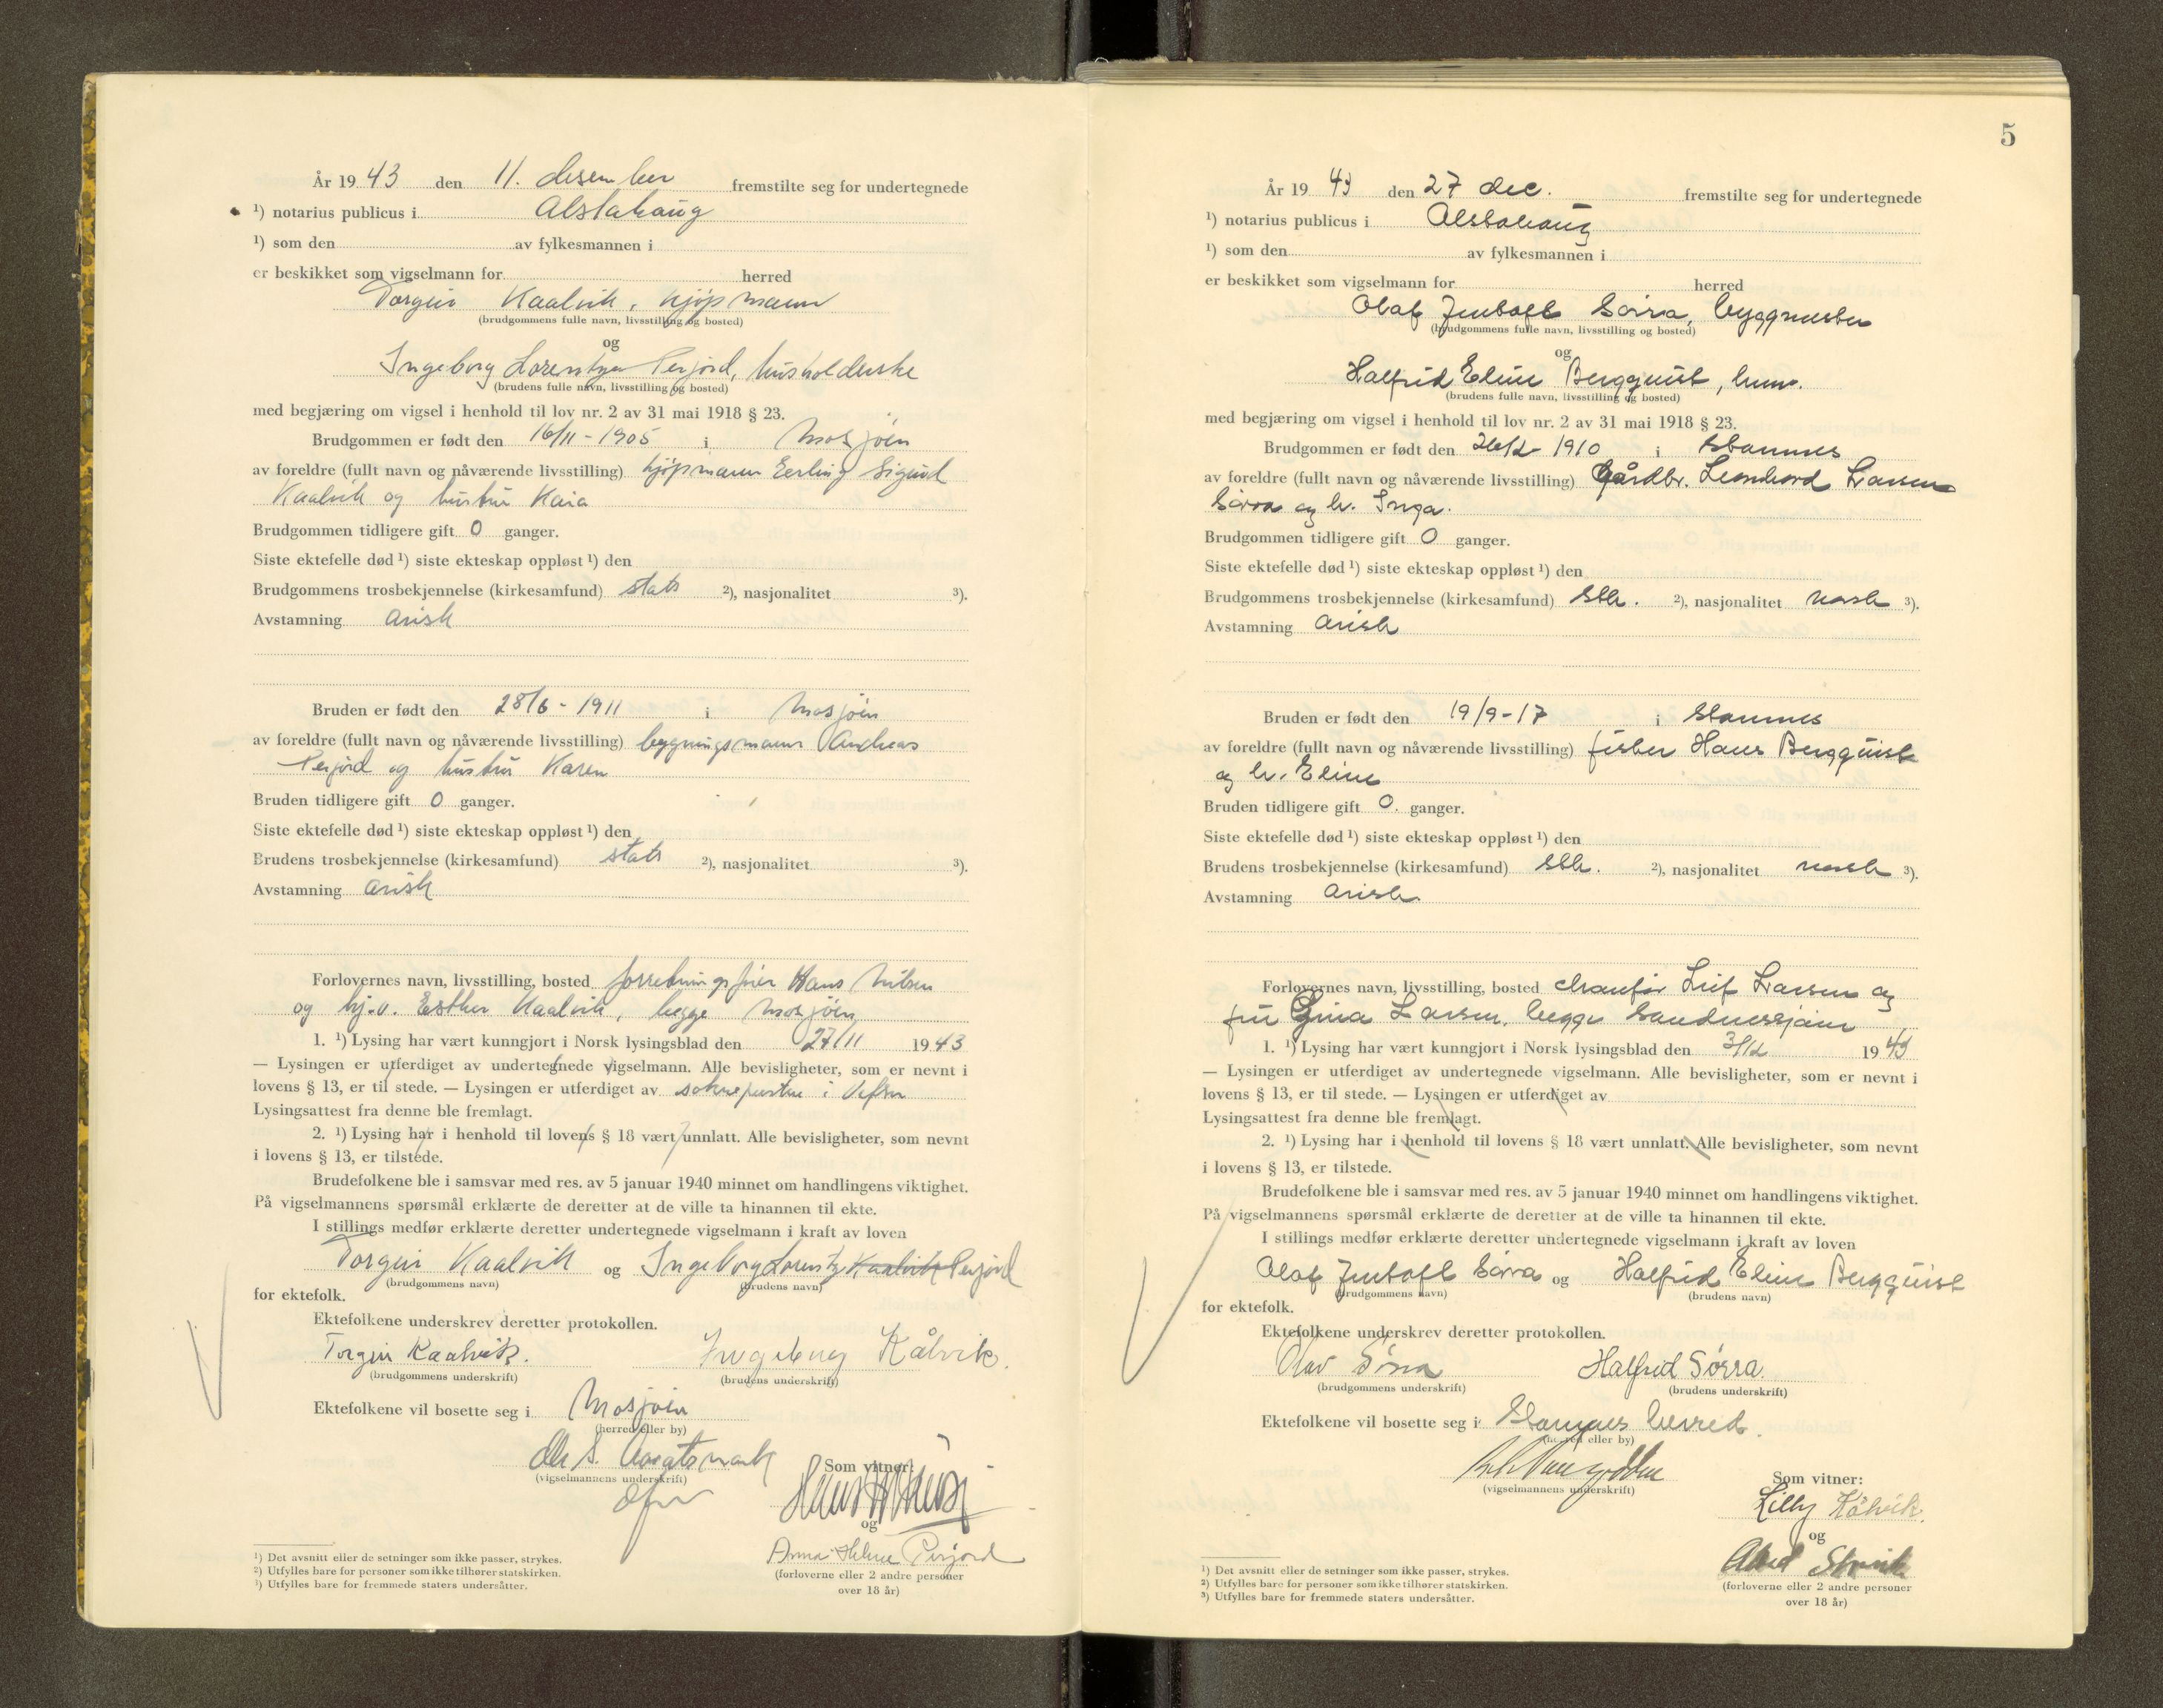 År 19 43 den 11. desember fremstilte seg for undertegnede
¹) notarius publicus i Alstahaug
¹) som den av fylkesmannen i
er beskikket som vigselmann for herred
Torgeir Kaalvik, kjøpmann
(brudgommens fulle navn, livsstilling og bosted)
og
Ingeborg Lorentze Perjord, husholderske
(brudens fulle navn, livsstilling og bosted)
med begjæring om vigsel i henhold til lov nr. 2 av 31 mai 1918 § 23.
Brudgommen er født den 16/11 - 1905 i Mosjøen
av foreldre (fullt navn og nåværende livsstilling) kjøpmann Erling Sigurd
Kaalvik og hustru Kaia
Brudgommen tidligere gift 0 ganger.
Siste ektefelle død ¹) siste ekteskap oppløst ¹) den
Brudgommens trosbekjennelse (kirkesamfund) stats ²), nasjonalitet ³).
Avstamning arisk
Bruden er født den 28/6 - 1911 i Mosjøen
av foreldre (fullt navn og nåværende livsstilling) bygningsmann Andreas
Perjord og hustru Karen
Bruden tidligere gift 0 ganger.
Siste ektefelle død ¹) siste ekteskap oppløst ¹) den
Brudens trosbekjennelse (kirkesamfund) stats ²), nasjonalitet ³).
Avstamning arisk
Forlovernes navn, livsstilling, bosted forretningsfører Hans Nilsen
og hj.v. Esther Kaalvik, begge Mosjøen
1. ¹) Lysing har vært kunngjort i Norsk lysingsblad den 27/11 19 43
— Lysingen er utferdiget av undertegnede vigselmann. Alle bevisligheter, som er nevnt i
lovens § 13, er til stede. — Lysingen er utferdiget av soknepresten i Vefsn
Lysingsattest fra denne ble fremlagt.
2. ¹) Lysing har i henhold til lovens § 18 vært unnlatt. Alle bevisligheter, som nevnt
i lovens § 13, er tilstede.
Brudefolkene ble i samsvar med res. av 5 januar 1940 minnet om handlingens viktighet.
På vigselmannens spørsmål erklærte de deretter at de ville ta hinannen til ekte.
I stillings medfør erklærte deretter undertegnede vigselmann i kraft av loven
Torgeir Kaalvik og Ingeborg Lorentze Kaalvik Perjord
(brudgommens navn) (brudens navn)
for ektefolk.
Ektefolkene underskrev deretter protokollen.
Torgeir Kaalvik. Ingeborg Kålvik.
(brudgommens underskrift) (brudens underskrift)
Ektefolkene vil bosette seg i Mosjøen
(herred eller by)
(vigselmannens underskrift)
Som vitner:
og
Anna Helene Perjord
(forloverne eller 2 andre personer
over 18 år)
¹) Det avsnitt eller de setninger som ikke passer, strykes.
²) Utfylles bare for personer som ikke tilhører statskirken.
³) Utfylles bare for fremmede staters undersåtter.
5
År 19 43 den 27 dec. fremstilte seg for undertegnede
¹) notarius publicus i Alstahaug
¹) som den av fylkesmannen i
er beskikket som vigselmann for herred
Olaf Jentoft Sørra, byggmester
(brudgommens fulle navn, livsstilling og bosted)
og
Halfrid Eline Bergquist, husm.
(brudens fulle navn, livsstilling og bosted)
med begjæring om vigsel i henhold til lov nr. 2 av 31 mai 1918 § 23.
Brudgommen er født den 1910 i Stamnes
av foreldre (fullt navn og nåværende livsstilling) Gårdbr. Leonhard Larsen
Sørra og h. Inga.
Brudgommen tidligere gift 0 ganger.
Siste ektefelle død ¹) siste ekteskap oppløst ¹) den
Brudgommens trosbekjennelse (kirkesamfund) stk. ²), nasjonalitet norsk ³).
Avstamning arisk
Bruden er født den 19/9-17 i Stamnes
av foreldre (fullt navn og nåværende livsstilling) fisker Hans Bergquist
og h. Eline
Bruden tidligere gift 0. ganger.
Siste ektefelle død ¹) siste ekteskap oppløst ¹) den
Brudens trosbekjennelse (kirkesamfund) stk. ²), nasjonalitet norsk ³).
Avstamning arisk
Forlovernes navn, livsstilling, bosted chaufør Leif Larsen og
fru Gina Larsen, begge Sandnessjøen
1. ¹) Lysing har vært kunngjort i Norsk lysingsblad den 3/12 19 43
— Lysingen er utferdiget av undertegnede vigselmann. Alle bevisligheter, som er nevnt i
lovens § 13, er til stede. — Lysingen er utferdiget av
Lysingsattest fra denne ble fremlagt.
2. ¹) Lysing har i henhold til lovens § 18 vært unnlatt. Alle bevisligheter, som nevnt
i lovens § 13, er tilstede.
Brudefolkene ble i samsvar med res. av 5 januar 1940 minnet om handlingens viktighet.
På vigselmannens spørsmål erklærte de deretter at de ville ta hinannen til ekte.
I stillings medfør erklærte deretter undertegnede vigselmann i kraft av loven
Olaf Jentoft Sørra og Halfrid Eline Bergquist
(brudgommens navn) (brudens navn)
for ektefolk.
Ektefolkene underskrev deretter protokollen.
Olav Sørra Halfrid Sørra.
(brudgommens underskrift) (brudens underskrift)
Ektefolkene vil bosette seg i Stamnes herred.
(herred eller by)
(vigselmannens underskrift)
Som vitner:
Lilly Kålvik.
og
(forloverne eller 2 andre personer
over 18 år)
¹) Det avsnitt eller de setninger som ikke passer, strykes.
²) Utfylles bare for personer som ikke tilhører statskirken.
³) Utfylles bare for fremmede staters undersåtter.